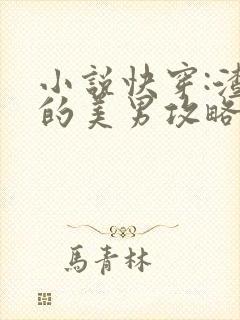 小说快穿:渣
的美男攻略
馬青林